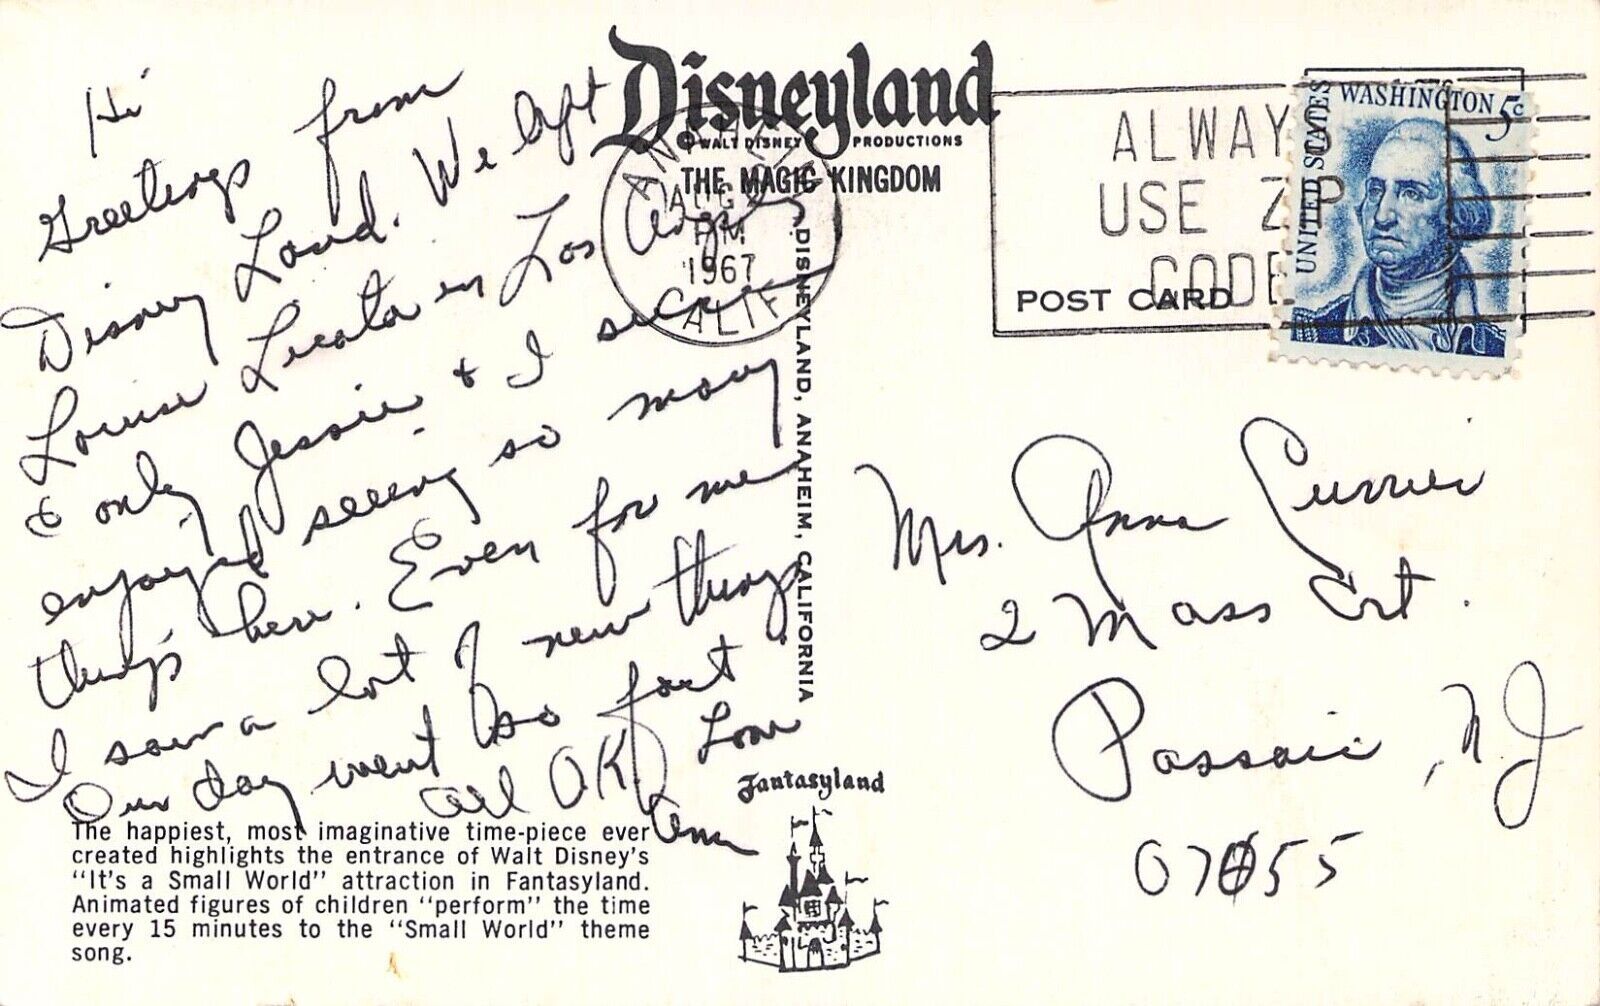 Disneyland
© WALT DISNEY PRODUCTIONS
THE MAGIC KINGDOM
Hi
Greetings from
Disney Land. We left
Louise Licata in Los Angeles
& only Jessie & I
enjoyed seeing so many
things here. Even for me
I saw a lot of new things
Our day went so fast
all OK. Love
Ann
The happiest, most imaginative time-piece ever
created highlights the entrance of Walt Disney's
"It's a Small World" attraction in Fantasyland.
Animated figures of children "perform" the time
every 15 minutes to the "Small World" theme
song.
Fantasyland
DISNEYLAND, ANAHEIM, CALIFORNIA
ANAHEIM
AUG
PM
1967
CALIF
ALWAYS
USE ZIP
CODE
POST CARD
UNITED STATES
WASHINGTON 5c
Mrs. Anna Currier
2 Mass Crt.
Passaic, NJ
07055